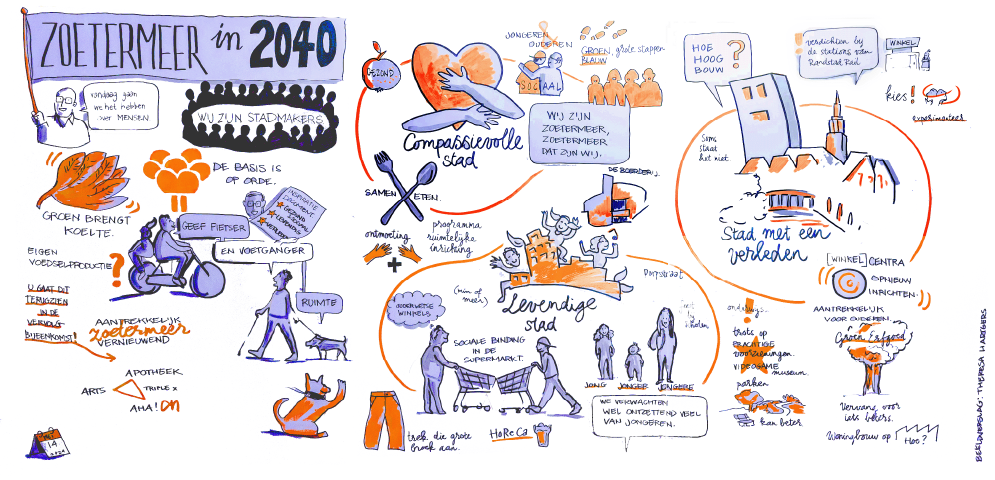 ZOETERMEER in 2040
vandaag gaan
we het hebben
over MENSEN
WIJ ZIJN STADMAKERS
GROEN BRENGT
KOELTE.
DE BASIS IS
OP ORDE.
GEEF FIETSER
EN VOETGANGER
RUIMTE
EIGEN
VOEDSELPRODUCTIE
?
U GAAT DIT
TERUGZIEN
IN DE
VERVOLG
BIJEENKOMST!
AANTREKKELIJK
zoetermeer
VERNIEUWEND
APOTHEEK
ARTS
TRIPLE X
AHA!
14
GEZOND
Compassievolle
stad
SAMEN ETEN.
ontmoeting
+
programma
ruimtelijke
inrichting.
JONGEREN
OUDEREN
SOCIAAL
GROEN, grote stappen
BLAUW
WIJ ZIJN
ZOETERMEER,
ZOETERMEER
DAT ZIJN WIJ.
DE BOERDERIJ.
(min of
meer)
Levendige
stad
Dorpsstraat
OUDERWETSE
WINKELS
SOCIALE BINDING
IN DE
SUPERMARKT.
JONG JONGER JONGERE
WE VERWACHTEN
WEL ONTZETTEND VEEL
VAN JONGEREN.
trek die grote
broek aan.
HoReCa
HOE
HOOG
BOUW
?
verdichten bij
de stations van
Randstad Rail
WINKEL
kies!
experimenteer
Soms
staat
het niet.
Stad met een
verleden
[WINKEL] CENTRA
OPNIEUW
INRICHTEN.
AANTREKKELIJK
VOOR OUDEREN.
Groen Erfgoed
Vervang voor
iets beters.
Woningbouw op
Hoe?
trots op
PRACHTIGE
voorzieningen
VIDEOGAME
museum
parken
kan beter
BEELDVERSLAG: THERESA HARTGERS